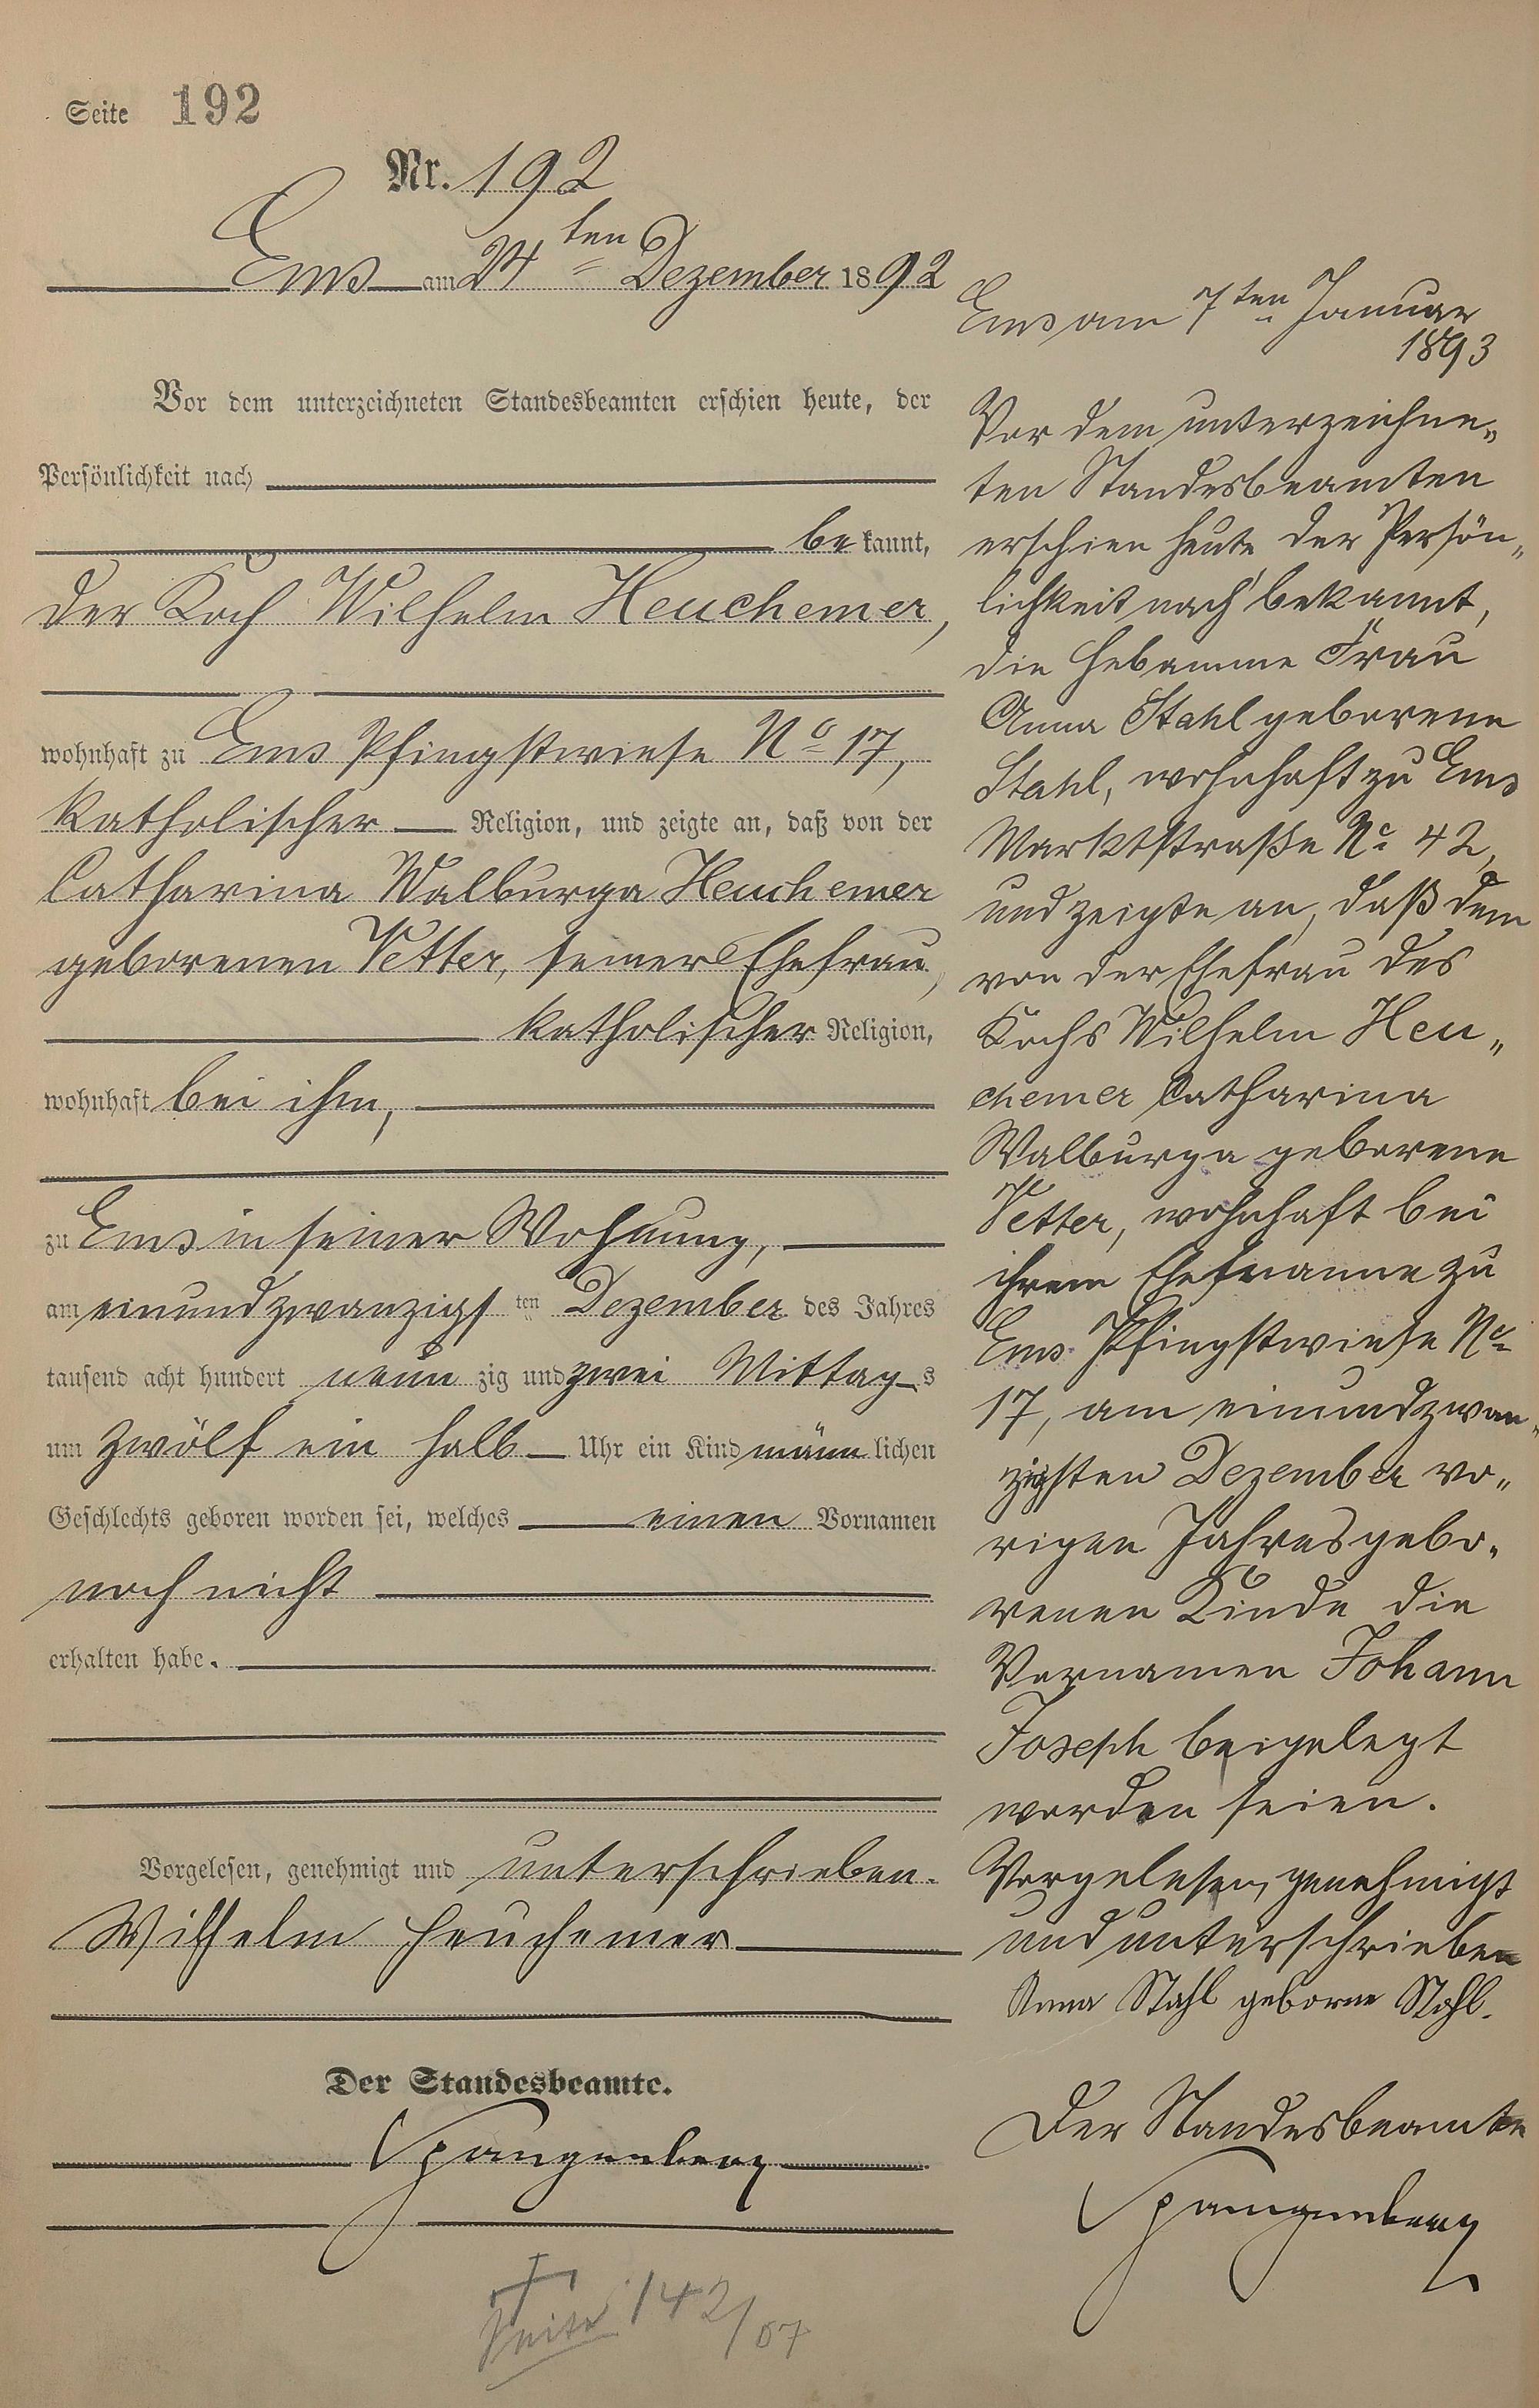 Seite 192
Nr. 192
Ems am 24ten Dezember 1892
Vor dem unterzeichneten Standesbeamten erschien heute, der
Persönlichkeit nach
bekannt,
der Koch Wilhelm Heuchemer,
wohnhaft zu Ems Pfingstwiese No 17,
katholischer Religion, und zeigte an, daß von der
Catharina Walburga Heuchemer
geborenen Vetter, seiner Ehefrau,
katholischer Religion,
wohnhaft bei ihm,
zu Ems in seiner Wohnung,
am einundzwanzigsten Dezember des Jahres
tausend acht hundert neunzig und zwei Mittags
um zwölf ein halb Uhr ein Kind männlichen
Geschlechts geboren worden sei, welches einen Vornamen
noch nicht
erhalten habe.
Vorgelesen, genehmigt und unterschrieben.
Wilhelm Heuchemer
Der Standesbeamte.
Spangenberg
142/07
Ems am 7ten Januar
1893
Vor dem unterzeichne„
ten Standesbeamten
erschien heute der Persön„
lichkeit nach bekannt,
die Hebamme Frau
Anna Stahl geborene
Stahl, wohnhaft zu Ems
Marktstraße No 42,
und zeigte an, daß dem
von der Ehefrau des
Kochs Wilhelm Heu„
chemer Catharina
Walburga geborene
Vetter, wohnhaft bei
ihrem Ehemanne zu
Ems Pfingstwiese No
17, am einundzwan„
zigsten Dezember vo„
rigen Jahres gebo„
renen Kinde die
Vornamen Johann
Joseph beigelegt
worden seien.
Vorgelesen, genehmigt
und unterschrieben
Anna Stahl geborne Stahl.
Der Standesbeamte
Spangenberg